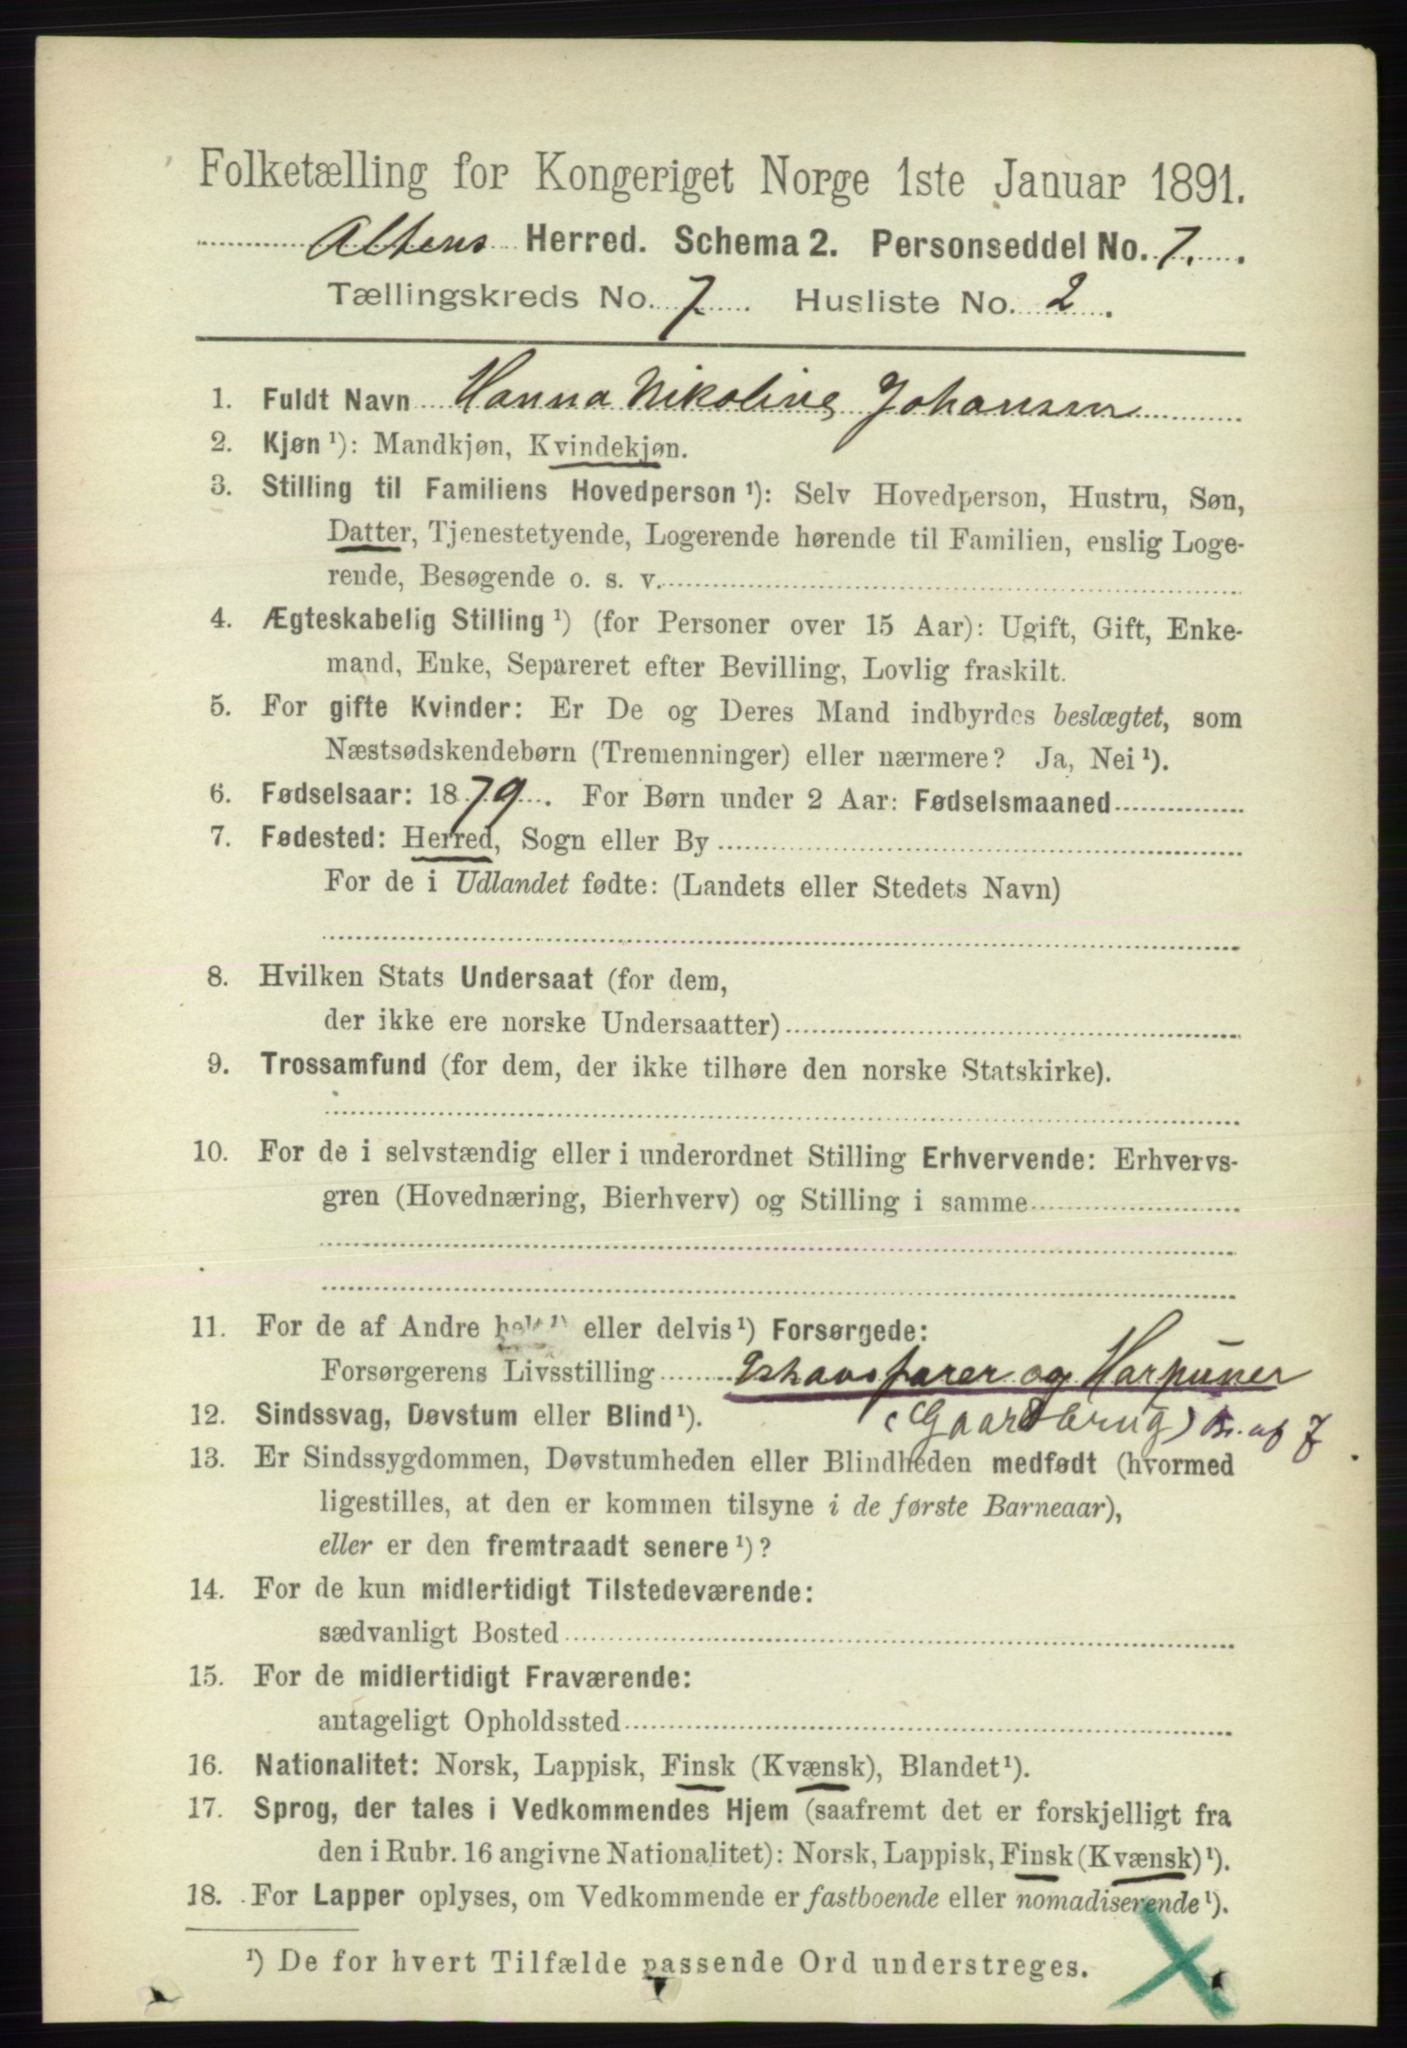 Folketælling for Kongeriget Norge 1ste Januar 1891.
Altens Herred. Schema 2. Personseddel No. 7.
Tællingskreds No. 7 Husliste No. 2.
1. Fuldt Navn Hanna Nikoline Johansen
2. Kjøn ¹): Mandkjøn, Kvindekjøn.
3. Stilling til Familiens Hovedperson ¹): Selv Hovedperson, Hustru, Søn,
Datter, Tjenestetyende, Logerende hørende til Familien, enslig Loge-
rende, Besøgende o. s. v.
4. Ægteskabelig Stilling ¹) (for Personer over 15 Aar): Ugift, Gift, Enke-
mand, Enke, Separeret efter Bevilling, Lovlig fraskilt.
5. For gifte Kvinder: Er De og Deres Mand indbyrdes beslægtet, som
Næstsødskendebørn (Tremenninger) eller nærmere? Ja, Nei ¹).
6. Fødselsaar: 1879. For Børn under 2 Aar: Fødselsmaaned
7. Fødested: Herred, Sogn eller By
For de i Udlandet fødte: (Landets eller Stedets Navn)
8. Hvilken Stats Undersaat (for dem,
der ikke ere norske Undersaatter)
9. Trossamfund (for dem, der ikke tilhøre den norske Statskirke).
10. For de i selvstændig eller i underordnet Stilling Erhvervende: Erhvervs-
gren (Hovednæring, Bierhverv) og Stilling i samme
11. For de af Andre helt ¹) eller delvis ¹) Forsørgede:
Forsørgerens Livsstilling Ishavsfarer og Harpuner
12. Sindssvag, Døvstum eller Blind ¹). (Gaardbrug) Br. af J
13. Er Sindssygdommen, Døvstumheden eller Blindheden medfødt (hvormed
ligestilles, at den er kommen tilsyne i de første Barneaar),
eller er den fremtraadt senere ¹)?
14. For de kun midlertidigt Tilstedeværende:
sædvanligt Bosted
15. For de midlertidigt Fraværende:
antageligt Opholdssted
16. Nationalitet: Norsk, Lappisk, Finsk (Kvænsk), Blandet ¹).
17. Sprog, der tales i Vedkommendes Hjem (saafremt det er forskjelligt fra
den i Rubr. 16 angivne Nationalitet): Norsk, Lappisk, Finsk (Kvænsk) ¹).
18. For Lapper oplyses, om Vedkommende er fastboende eller nomadiserende ¹).
¹) De for hvert Tilfælde passende Ord understreges.